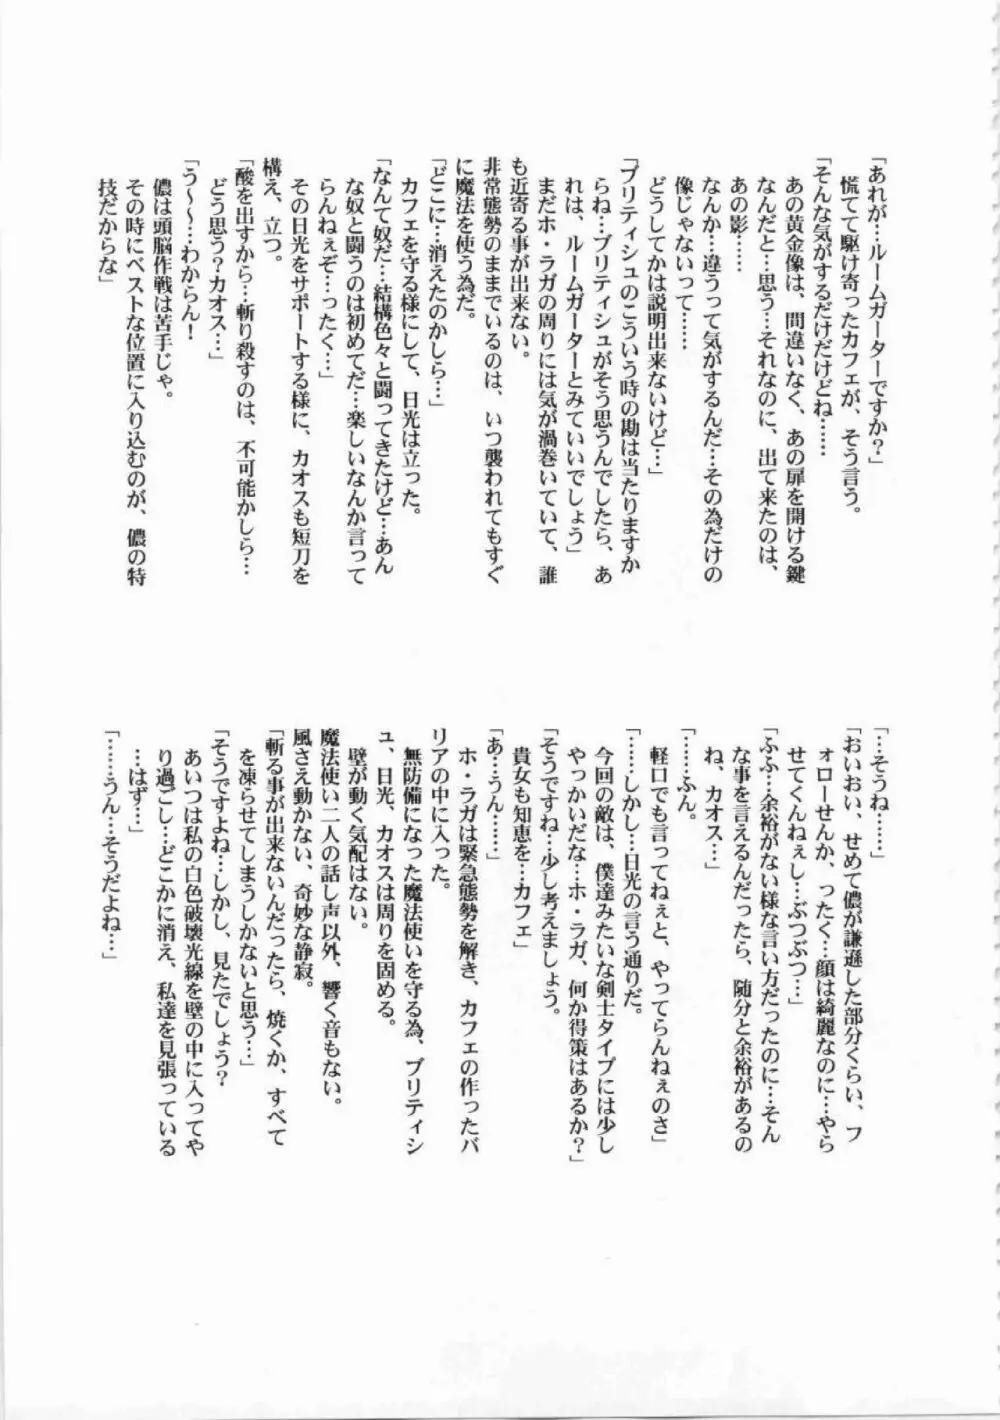 「あれが…ルームガーターですか？」
慌てて駆け寄ったカフェが、そう言う。
「そんな気がするだけだけどね……
あの黄金像は、間違いなく、あの扉を開ける鍵
なんだと…思う…それなのに、出て来たのは、
あの影……
なんか…違うって気がするんだ…その為だけの
像じゃないって……
どうしてかは説明出来ないけど…」
「ブリティシュのこういう時の勘は当たりますか
らね…ブリティシュがそう思うんでしたら、あ
れは、ルームガーターとみていいでしょう」
まだホ・ラガの周りには気が渦巻いていて、誰
も近寄る事が出来ない。
非常態勢のままでいるのは、いつ襲われてもすぐ
に魔法を使う為だ。
「どこに…消えたのかしら…」
カフェを守る様にして、日光は立った。
「なんて奴だ…結構色々と闘ってきたけど…あん
な奴と闘うのは初めてだ…楽しいなんか言って
らんねぇぞ…ったく…」
その日光をサポートする様に、カオスも短刀を
構え、立つ。
「酸を出すから…斬り殺すのは、不可能かしら…
どう思う？カオス…」
「う〜〜…わからん！
儂は頭脳作戦は苦手じゃ。
その時にベストな位置に入り込むのが、儂の特
技だからな」
「…そうね……」
「おいおい、せめて儂が謙遜した部分くらい、フ
ォローせんか、ったく…顔は綺麗なのに…やら
せてくんねぇし…ぶつぶつ…」
「ふふ…余裕がない様な言い方だったのに…そん
な事を言えるんだったら、随分と余裕があるの
ね、カオス…」
「……ふん。
軽口でも言ってねぇと、やってらんねぇのさ」
「……しかし…日光の言う通りだ。
今回の敵は、僕達みたいな剣士タイプには少し
やっかいだな…ホ・ラガ、何か得策はあるか？」
「そうですね…少し考えましょう。
貴女も知恵を…カフェ」
「あ…うん……」
ホ・ラガは緊急態勢を解き、カフェの作ったバ
リアの中に入った。
無防備になった魔法使いを守る為、ブリティシ
ュ、日光、カオスは周りを固める。
壁が動く気配はない。
魔法使い二人の話し声以外、響く音もない。
風さえ動かない、奇妙な静寂。
「斬る事が出来ないんだったら、焼くか、すべて
を凍らせてしまうしかないと思う…」
「そうですよね…しかし、見たでしょう？
あいつは私の白色破壊光線を壁の中に入ってや
り過ごし…どこかに消え、私達を見張っている
…はず…」
「……うん…そうだよね…」